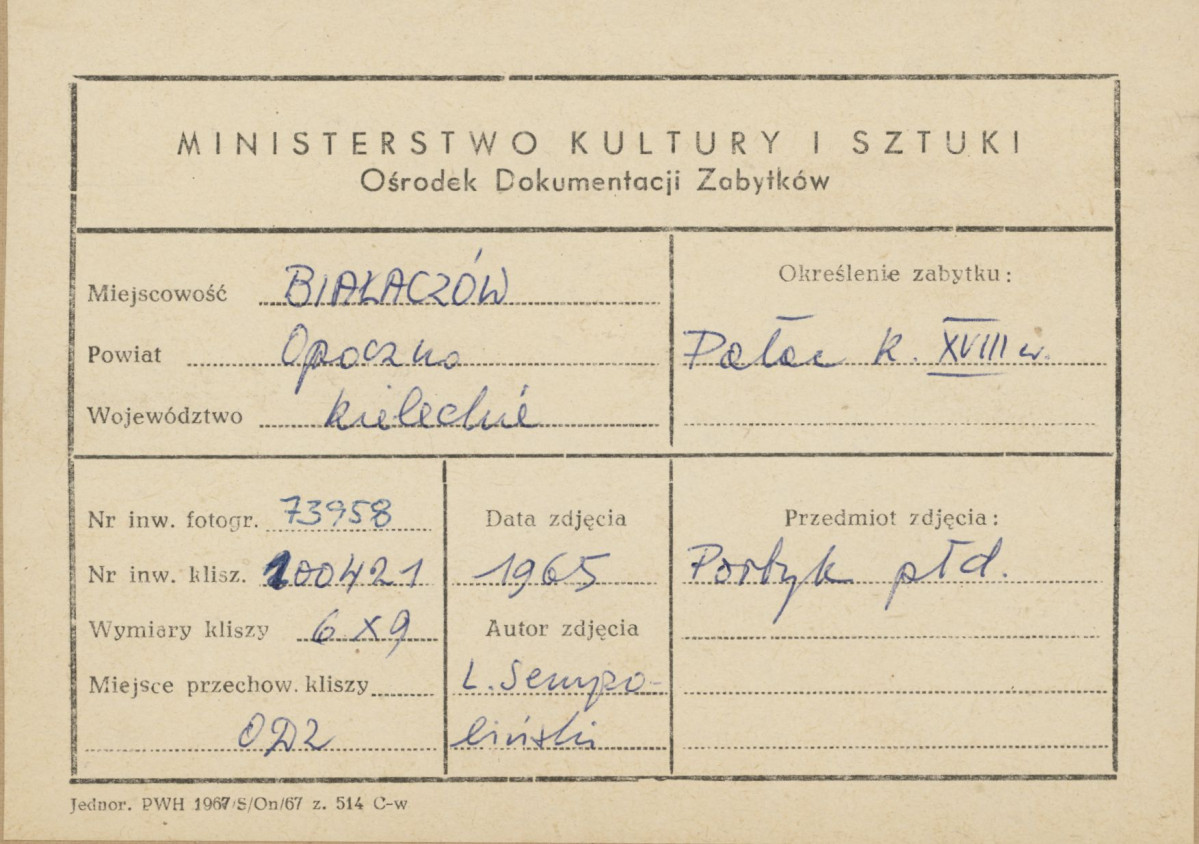 MINISTERSTWO KULTURY I SZTUKI
Ośrodek Dokumentacji Zabytków
Miejscowość BIAŁACZÓW
Powiat Opoczno
Województwo kieleckie
Określenie zabytku:
Pałac k. XVIII w.
Nr inw. fotogr. 73958
Nr inw. klisz. 100421
Wymiary kliszy 6 x 9
Miejsce przechow. kliszy
ODZ
Data zdjęcia
1965
Autor zdjęcia
L. Sempo-
liński
Przedmiot zdjęcia:
Portyk płd.
Jednor. PWH 1967/S/On/67 z. 514 C-w